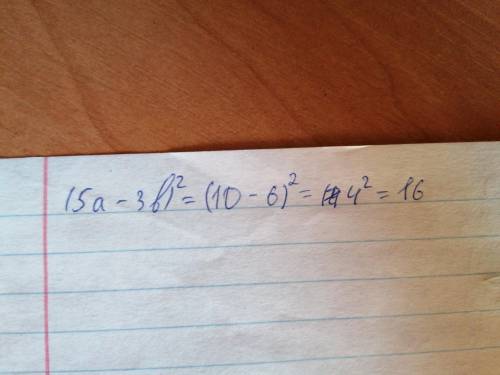 (5a - 3b)² = (10 - 6)² = 4² = 16